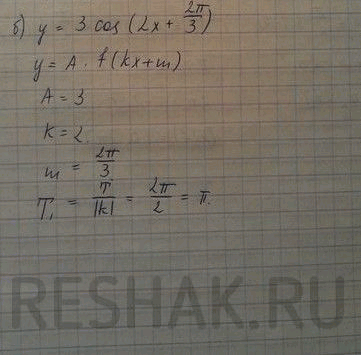 б) y = 3 cos (2x + 2π/3)
y = A · f(kx+m)
A = 3
K = 2.
m = 2π/3
T₁ = T/|k| = 2π/2 = π.
RESHAK.RU